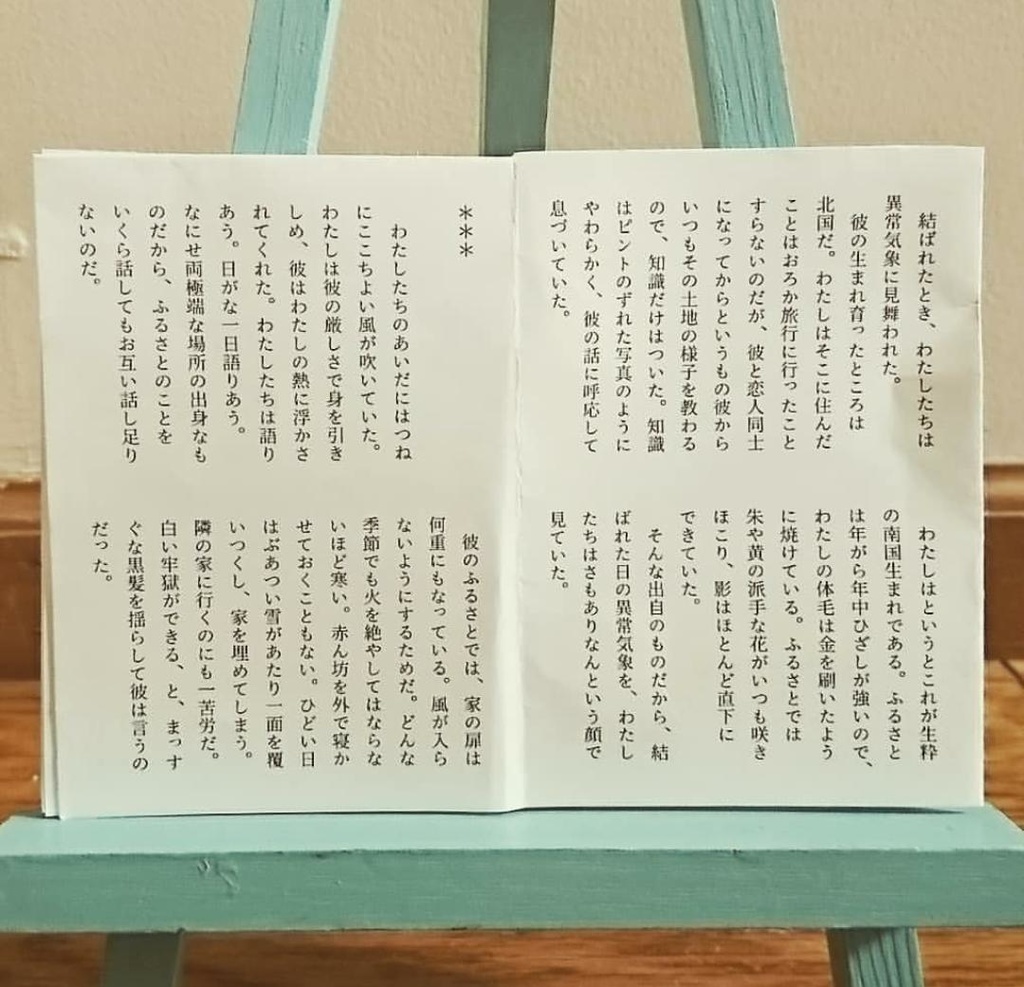 結ばれたとき、わたしたちは
異常気象に見舞われた。
彼の生まれ育ったところは
北国だ。わたしはそこに住んだ
ことはおろか旅行に行ったこと
すらないのだが、彼と恋人同士
になってからというもの彼から
いつもその土地の様子を教わる
ので、知識だけはついた。知識
はピントのずれた写真のように
やわらかく、彼の話に呼応して
息づいていた。
わたしはというとこれが生粋
の南国生まれである。ふるさと
は年がら年中ひざしが強いので、
わたしの体毛は金を刷いたよう
に焼けている。ふるさとでは
朱や黄の派手な花がいつも咲き
ほこり、影はほとんど直下に
できていた。
そんな出自のものだから、結
ばれた日の異常気象を、わたし
たちはさもありなんという顔で
見ていた。
＊＊＊
わたしたちのあいだにはつね
にここちよい風が吹いていた。
わたしは彼の厳しさで身を引き
しめ、彼はわたしの熱に浮かさ
れてくれた。わたしたちは語り
あう。日がな一日語りあう。
なにせ両極端な場所の出身なも
のだから、ふるさとのことを
いくら話してもお互い話し足り
ないのだ。
彼のふるさとでは、家の扉は
何重にもなっている。風が入ら
ないようにするためだ。どんな
季節でも火を絶やしてはならな
いほど寒い。赤ん坊を外で寝か
せておくこともない。ひどい日
はぶあつい雪があたり一面を覆
いつくし、家を埋めてしまう。
隣の家に行くのにも一苦労だ。
白い牢獄ができる、と、まっす
ぐな黒髪を揺らして彼は言うの
だった。